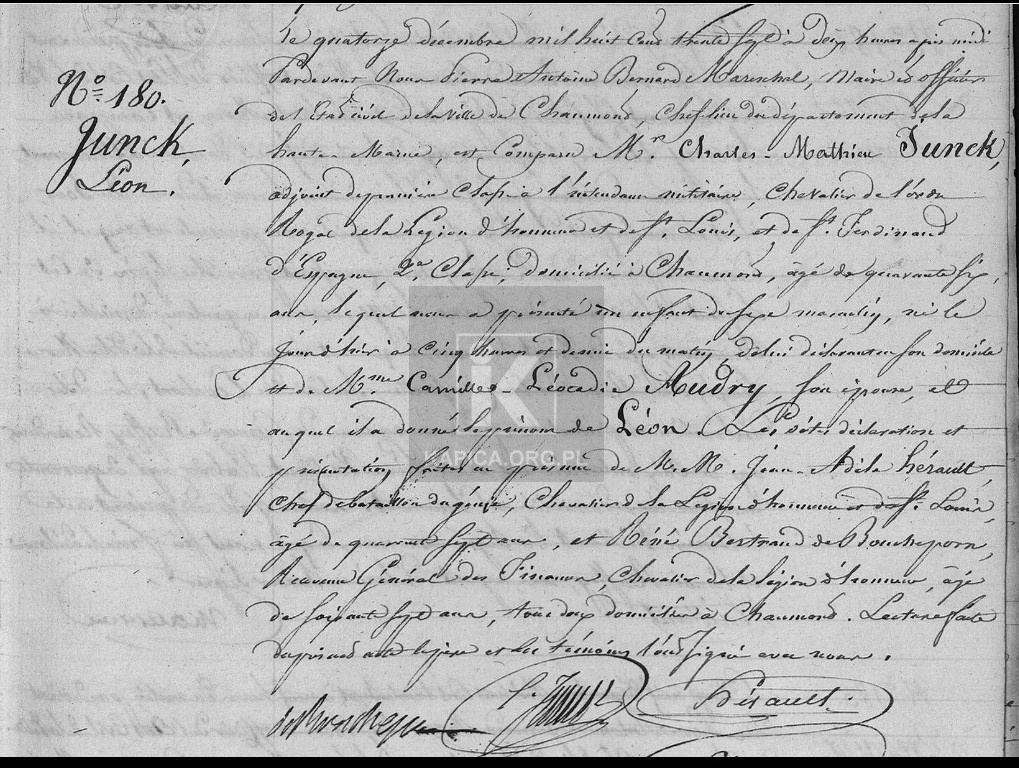 N° 180.
Junck,
Léon.
Le quatorze décembre mil huit cent trente sept à deux heures après midi
Pardevant Nous Pierre Antoine Bernard Mareschal, Maire et officier
de l'Etat civil de la Ville de Chaumont, Chef lieu du département de la
haute-Marne, est Comparu Mr. Charles-Mathieu Junck,
adjoint de première Classe à l'intendance militaire, Chevalier de l'ordre
Royal de la Légion d'honneur et de St. Louis, et de St. Ferdinand
d'Espagne, 2e. Classe, domicilié à Chaumont, âgé de quarante six
ans, lequel nous a présenté un enfant du sexe masculin, né le
jour d'hier à cinq heures et demie du matin de lui déclarant en son domicile
et de Mme Camille-Léocadie Audry, son épouse, et
auquel il a donné le prénom de Léon. Les dites déclaration et
présentation faites en présence de M.M. Jean-Adèle hérault
Chef de bataillon du génie, Chevalier de la Légion d'honneur et de St. Louis,
âgé de quarante sept ans, et Réné Bertrand de Boucheporn,
Receveur Général des Finances Chevalier de la légion d'honneur, âgé
de soixante sept ans, tous deux domiciliés à Chaumont. Lecture faite
du présent acte le père et les témoins l'ont signé avec nous.
de Boucheporn
C. Junck
Hérault
K
ŁAPICA.ORG.PL